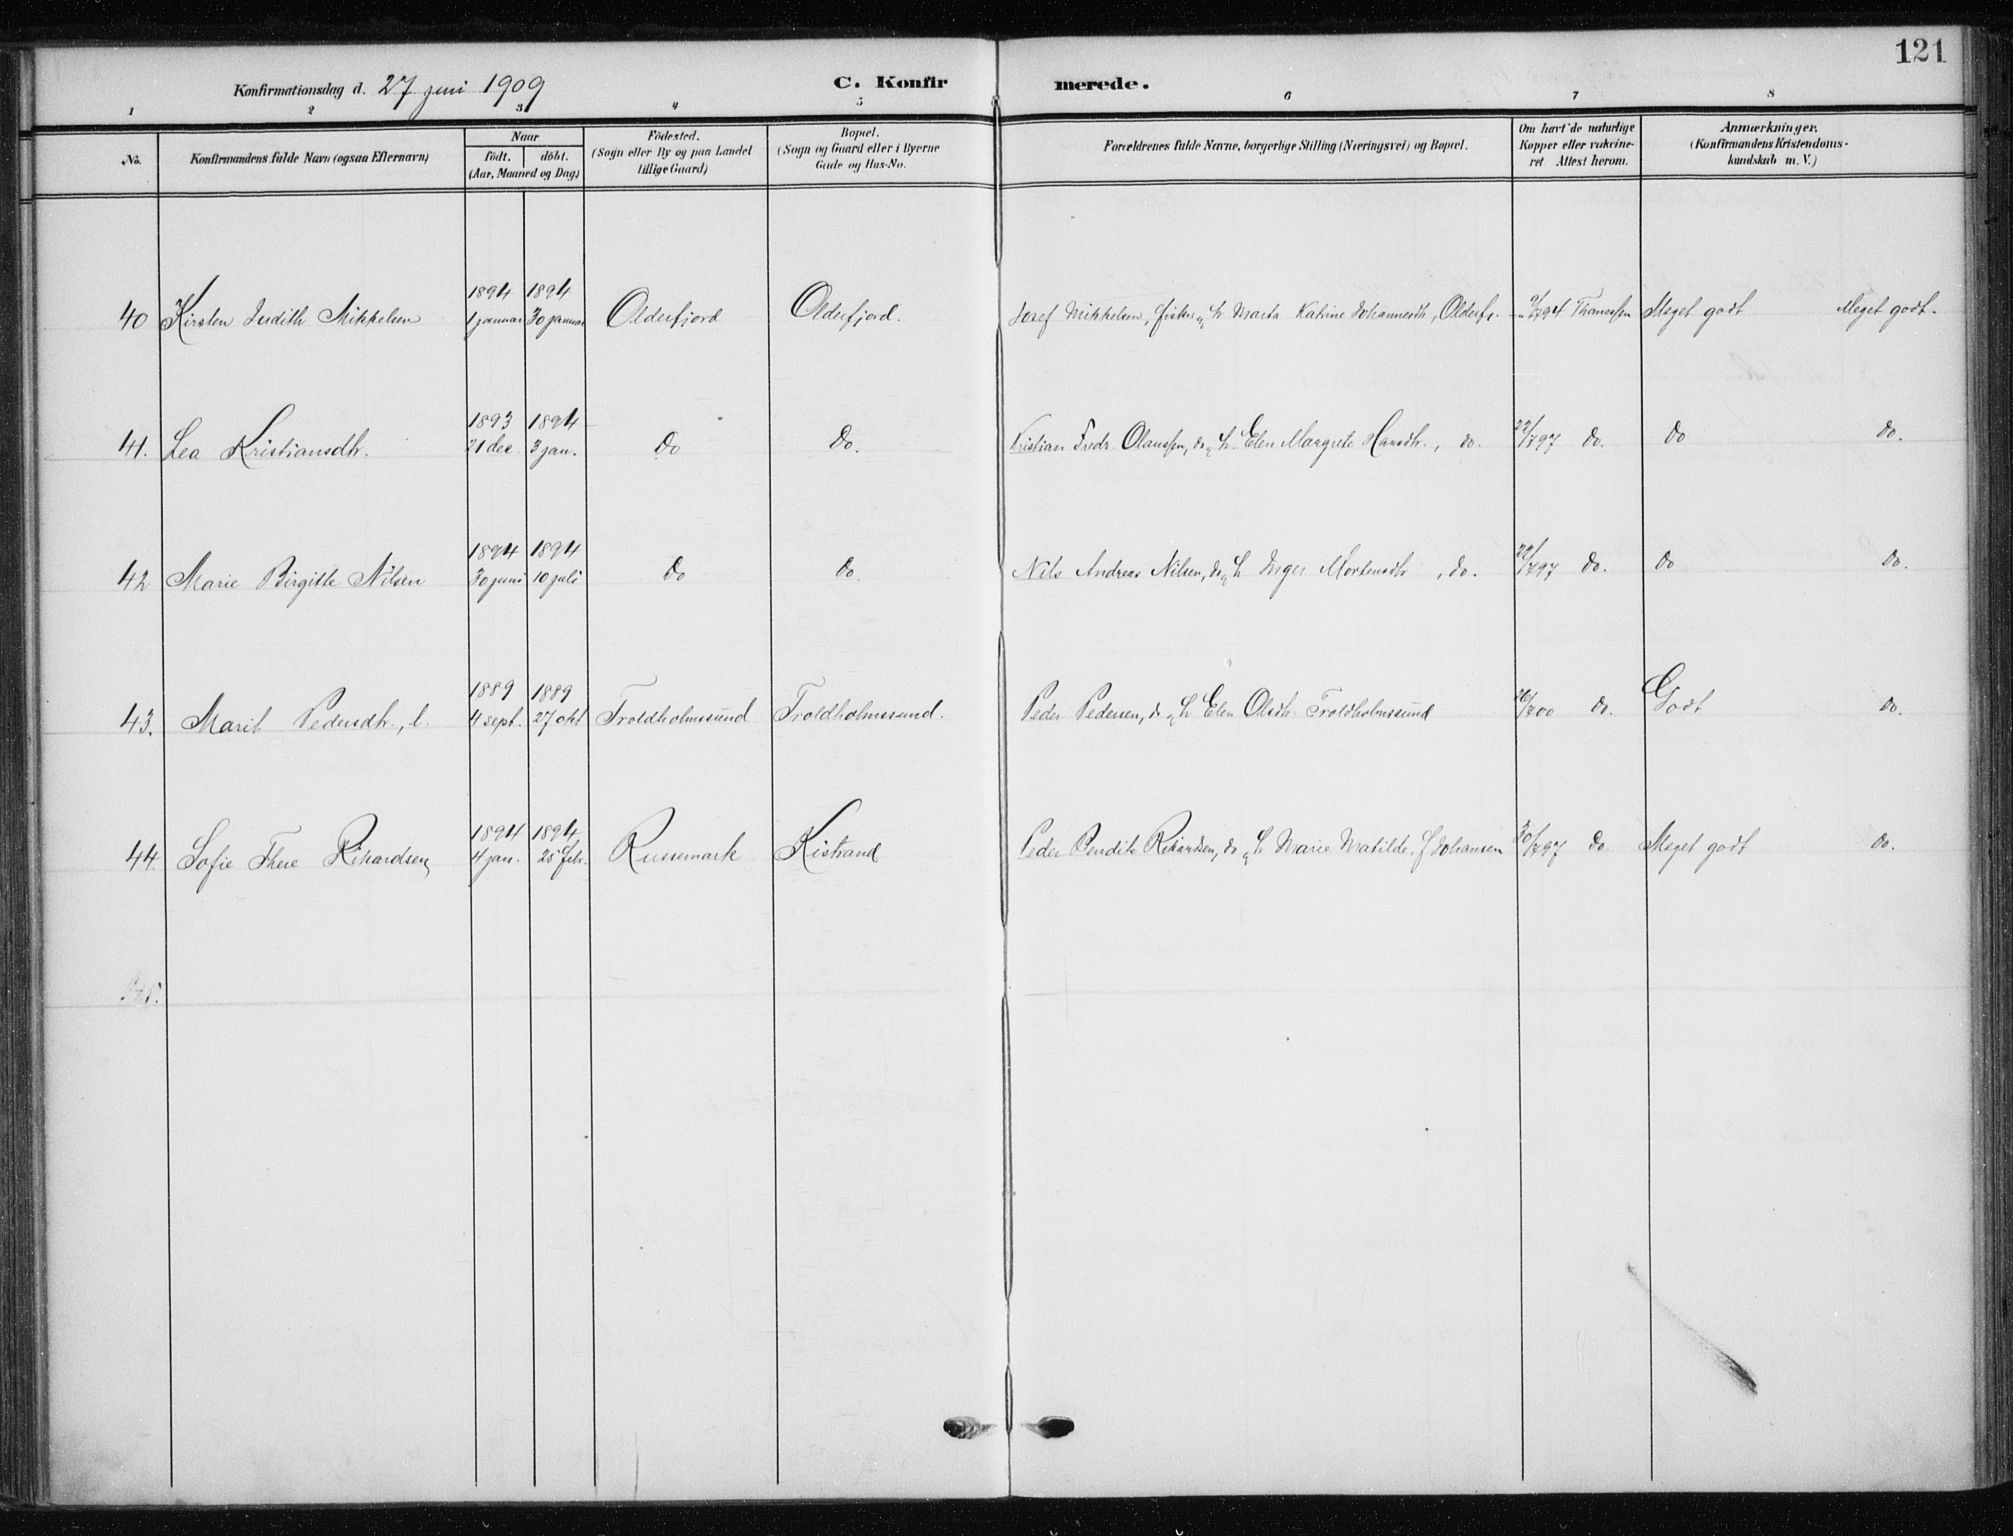 121
Konfirmationsdag d. 27 juni 1909 C. Konfirmerede.
1 2 3 4 5 6 7 8
No. Konfirmandens fulde Navn (ogsaa Efternavn) Naar Födested. Bopæl. Forældrenes fulde Navne, borgerlige Stilling (Næringsvei) og Bopæl. Om havt de naturlige Anmærkninger.
födt. döbt. (Sogn eller By og paa Landet (Sogn og Gaard eller i Byerne Kopper eller vakcine- (Konfirmandens Kristendoms-
(Aar, Maaned og Dag) tillige Gaard) Gade og Hus-No. ret Attest herom. kundskab m. V.)
1894 1894
40 Kirsten Judith Mikkelsen 1 januar 30 januar Olderfjord Olderfjord. Josef Mikkelsen, fisker og h. Marta Katrine Johannesdtr, Olderfj. Meget godt Meget godt.
1893 1894
41. Lea Kristiansdtr. 21 dec. 3 jan. Do Do. Kristian Fredr. Olaussen, do. og h. Elen Margrete Hansdtr., do. 22/7 97 do. do do.
1894 1894
42 Marie Birgitte Nilsen 30 juni 10 juli Do Do. Nils Andreas Nilsen, do og h. Inger Mortensdtr, do. 22/7 97 do. do do.
1889 1889
43. Marit Pedersdtr., l. 4 sept. 27 okt Troldholmssund Troldholmssund. Peder Pedersen, do og h. Elen Olsdtr. Troldholmssund do. Godt do.
1894 1894
44. Sofie There Rikardsen 4 jan. 25 febr. Russemark Kistrand Peder Bendik Rikardsen, do og h. Marie Matilde, f. Johansen 30/7 97 do. Meget godt do.